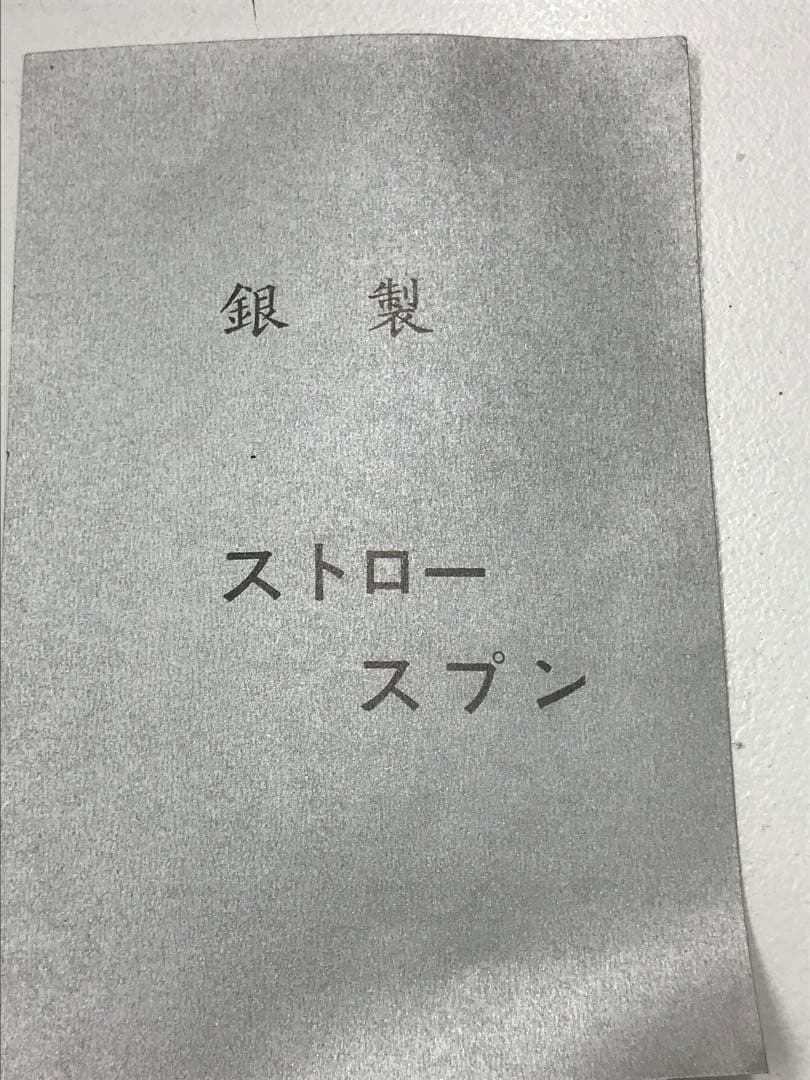 銀製
ストロー
スプン